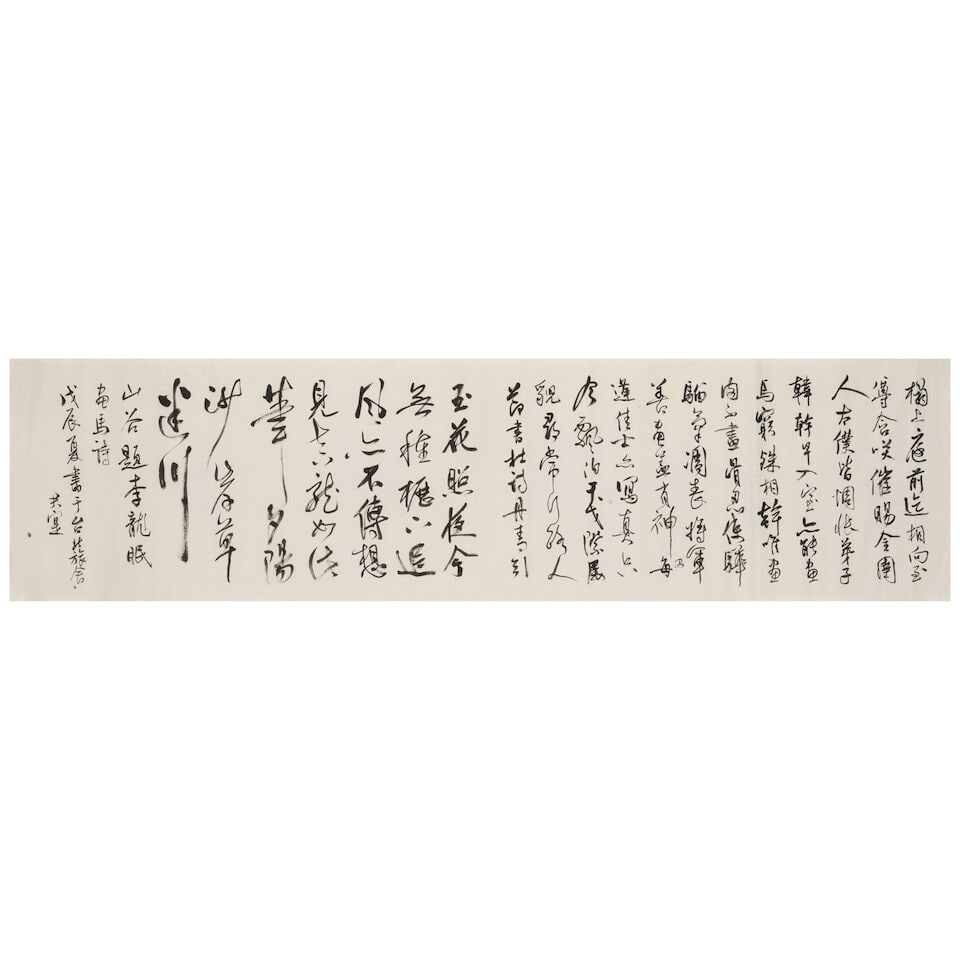 榻上庭前迄相向至
尊含咲催賜金圉
人太僕皆惆悵弟子
韓幹早入室亦能畫
馬窮殊相幹唯畫
肉不畫骨忍使驊
騮氣凋喪將軍
善畫蓋有神每
逢佳士亦寫真只
今飄泊干戈際屢
貌尋常行路人
節書杜詩丹青引
玉花照夜今
無種櫪上追
風亦不傳想
見真龍如此
筆夕陽
沙岸草
迷川
山谷題李龍眠
畫馬詩
戊辰夏書于台北旅舍